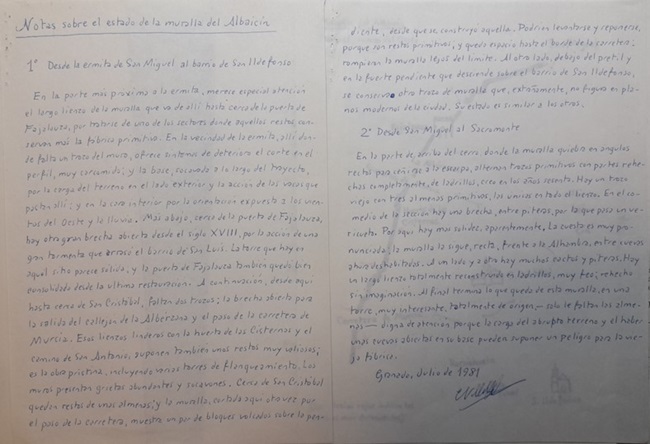 Notas sobre el estado de la muralla del Albaicín
1º Desde la ermita de San Miguel al barrio de San Ildefonso
En la parte más próxima a la ermita, merece especial atención
el largo lienzo de la muralla que va de allí hasta cerca de la puerta de
Fajalauza, por tratarse de uno de los sectores donde aquellos restos con-
servan más la fábrica primitiva. En la vecindad de la ermita, allí don-
de falta un trozo del muro, ofrece síntomas de deterioro el corte en el
perfil, muy carcomido; y la base, socavada a lo largo del trayecto,
por la carga del terreno en el lado exterior y la acción de las vacas que
pastan allí; y en la cara interior por la orientación expuesta a los vien-
tos del Oeste y la lluvia. Más abajo, cerca de la puerta de Fajalauza,
hay otra gran brecha abierta desde el siglo XVIII, por la acción de una
gran tormenta que arrasó el barrio de San Luis. La torre que hay en
aquel sitio parece sólida, y la puerta de Fajalauza también quedó bien
consolidada desde la última restauración. A continuación, desde aquí
hasta cerca de San Cristóbal, faltan dos trozos; la brecha abierta para
la salida del callejón de la Alberzana y el paso de la carretera de
Murcia. Esos lienzos linderos con la huerta de las Cisternas y el
camino de San Antonio, suponen también unos restos muy valiosos;
es la obra prístina, incluyendo varias torres de flanqueamiento. Los
muros presentan grietas abundantes y socavones. Cerca de San Cristóbal
quedan restos de unas almenas; y la muralla, cortada aquí otra vez por
el paso de la carretera, muestra un par de bloques volcados sobre la pen-
diente, desde que se construyó aquella. Podrían levantarse y reponerse,
porque son restos primitivos, y queda espacio hasta el borde de la carretera;
rompieron la muralla lejos del límite. Al otro lado, debajo del pretil y
en la fuerte pendiente que desciende sobre el barrio de San Ildefonso,
se conserva otro trozo de muralla que, extrañamente, no figura en pla-
nos modernos de la ciudad. Su estado es similar a los otros.
2º Desde San Miguel al Sacromonte
En la parte de arriba del cerro, donde la muralla quiebra en ángulos
rectos para ceñirse a la escarpa, alternan trozos primitivos con partes rehe-
chas completamente, de ladrillos, creo en los años sesenta. Hay un trozo
viejo con tres almenas primitivas, las únicas en todo el barrio. En el co-
medio de la sección hay una brecha, entre piteras, por la que pasa un ve-
ricueto. Por aquí hay más solidez, aparentemente. La cuesta es muy pro-
nunciada; la muralla la sigue, recta, frente a la Alhambra, entre cuevas
ahora deshabitadas. A un lado y a otro hay muchos cactos y piteras. Hay
un largo lienzo totalmente reconstruido en ladrillos, muy feo; rehecho
sin imaginación. Al final termina lo que queda de esta muralla, en una
torre, muy interesante, totalmente de origen,— solo le faltan las alme-
nas— digna de atención porque la carga del abrupto terreno y el haber
unas cuevas abiertas en su base pueden suponer un peligro para la vie-
ja fábrica.
Granada, Julio de 1981